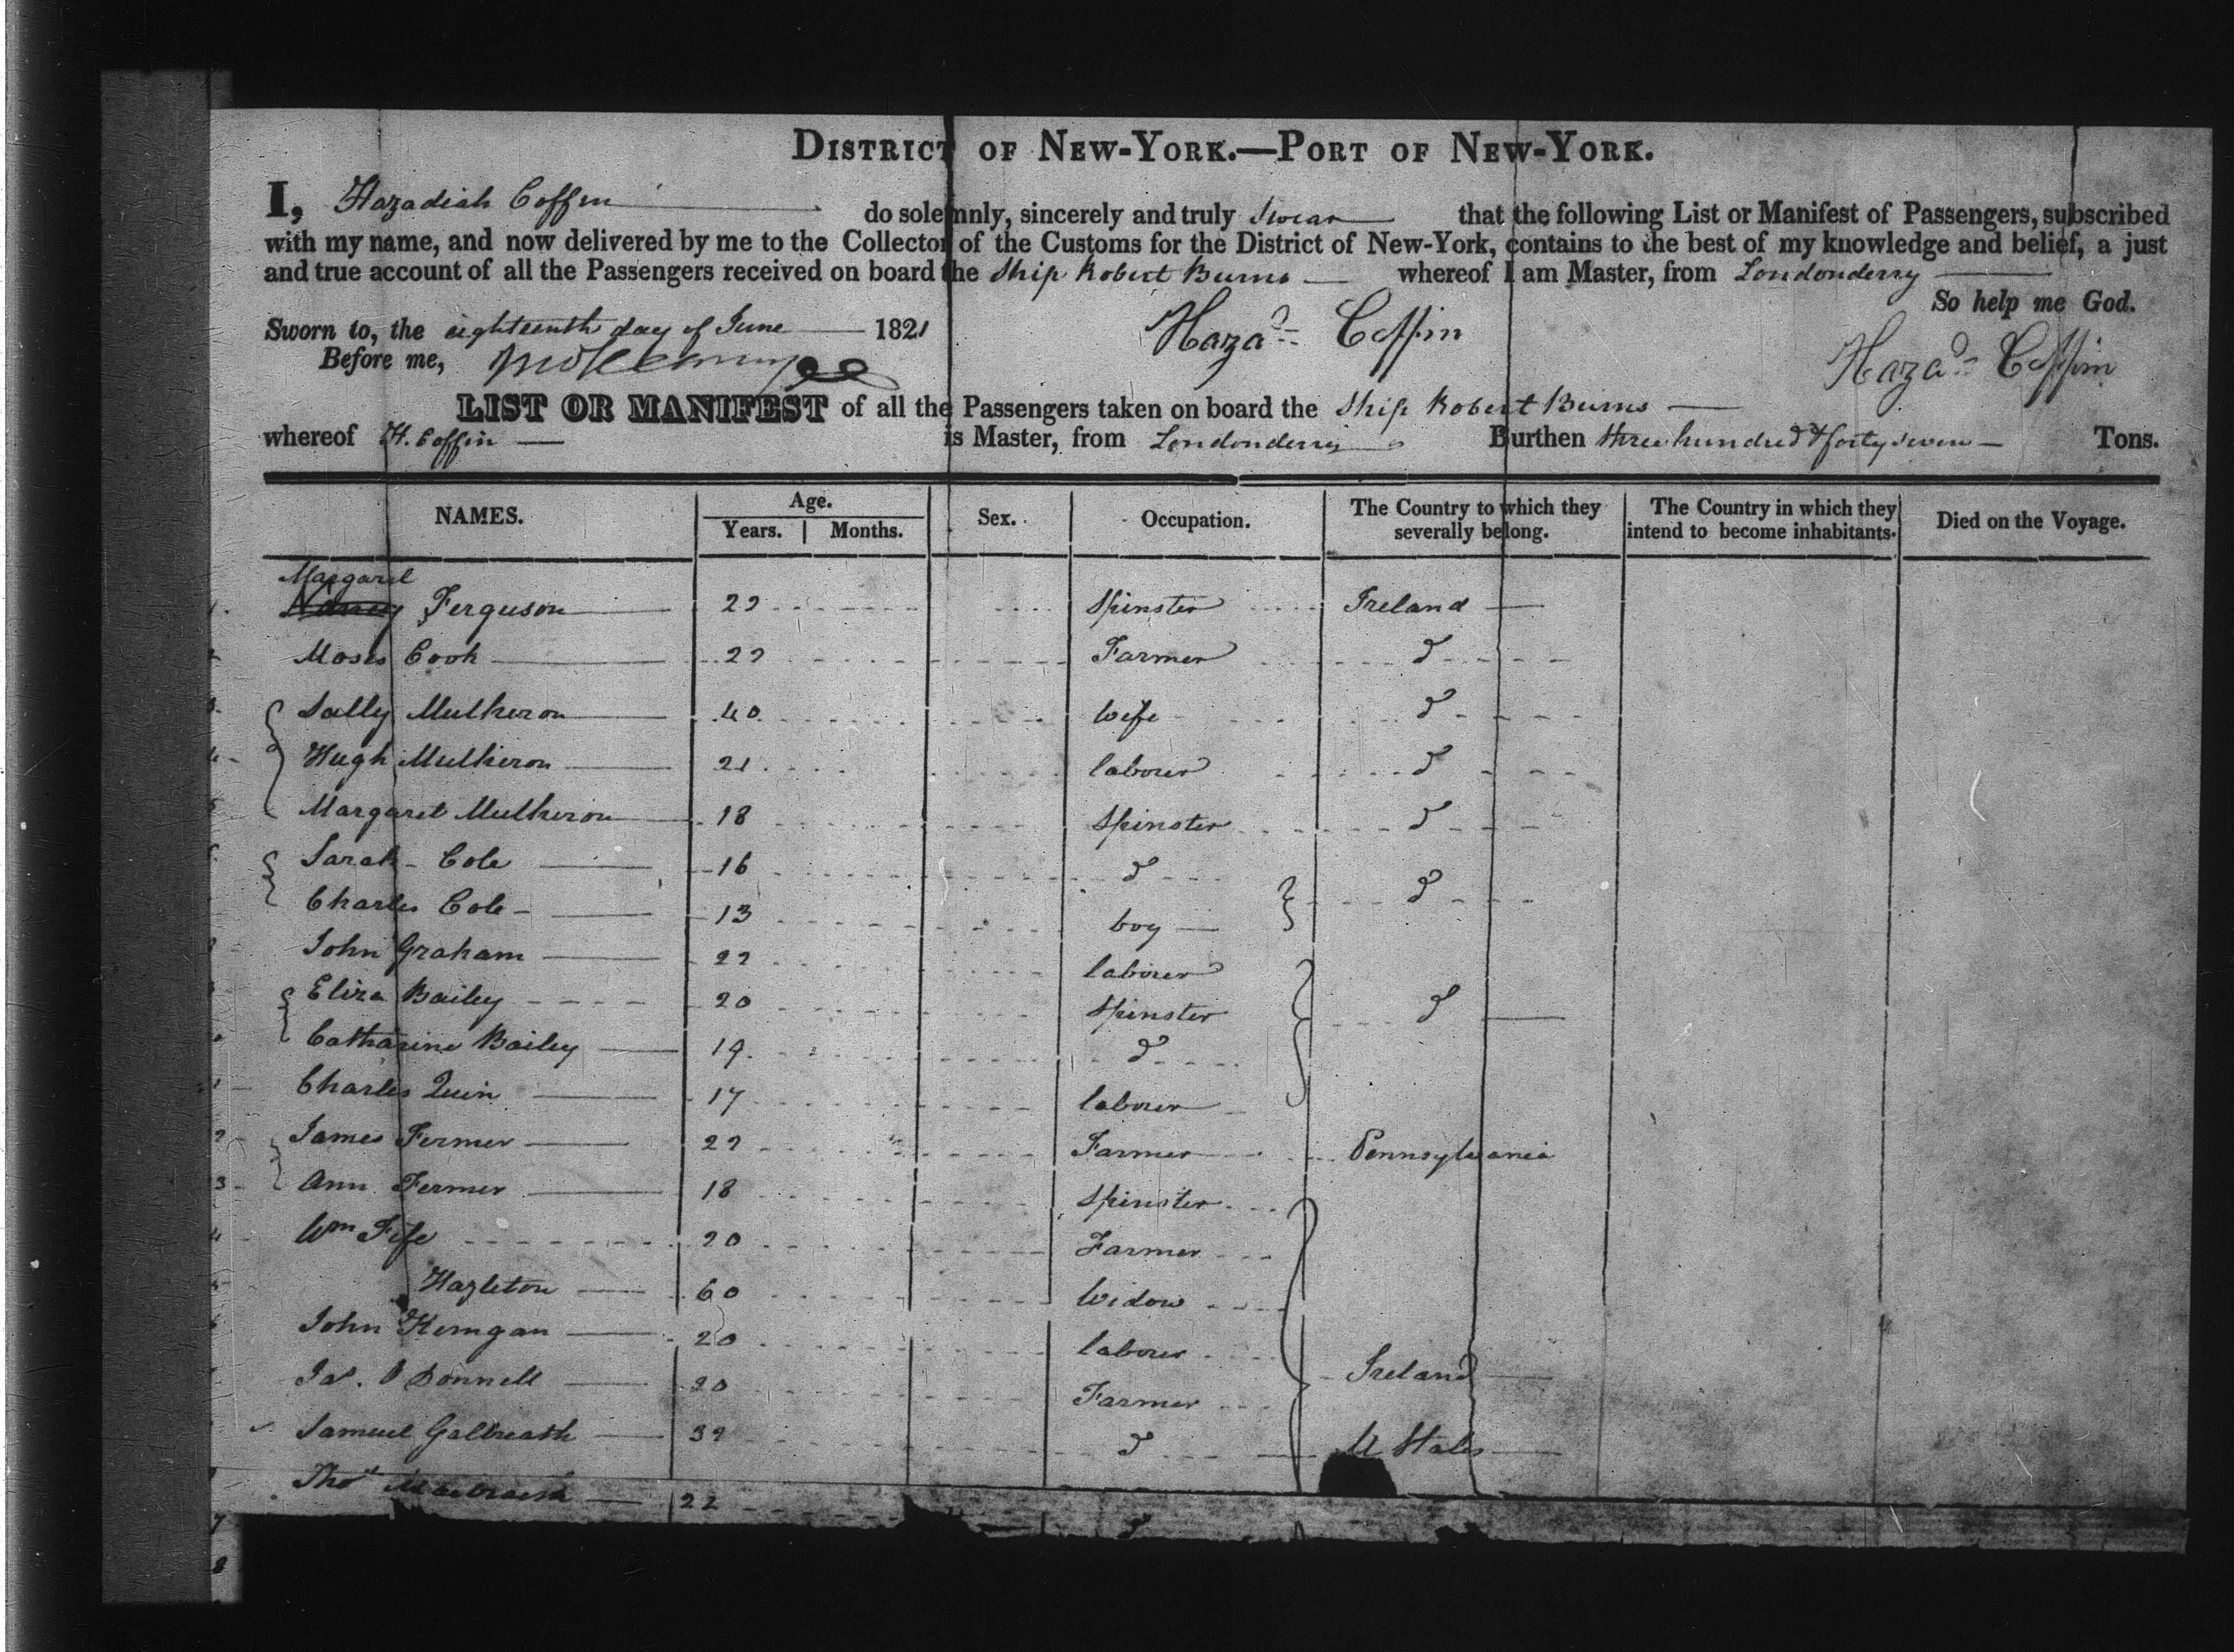 DISTRICT OF NEW-YORK.—PORT OF NEW-YORK.
I, Hazadiah Coffin do solemnly, sincerely and truly Swear that the following List or Manifest of Passengers, subscribed
with my name, and now delivered by me to the Collector of the Customs for the District of New-York, contains to the best of my knowledge and belief, a just
and true account of all the Passengers received on board the Ship Robert Burns whereof I am Master, from Londonderry
So help me God.
Sworn to, the eighteenth day of June 1821 Hazad Coffin
Before me, Hazad Coffin
LIST OR MANIFEST of all the Passengers taken on board the Ship Robert Burns
whereof H. Coffin is Master, from Londonderry Burthen three hundred & forty seven Tons.
NAMES. Age. Years. Months. Sex. Occupation. The Country to which they severally belong. The Country in which they intend to become inhabitants. Died on the Voyage.
Margaret
Nancy Ferguson 22 Spinster Ireland
Moses Cook 22 Farmer d
Sally Mulheron 40 Wife d
Hugh Mulheron 21 laborer d
Margaret Mulheron 18 Spinster d
Sarah Cole 16 d
Charles Cole 13 boy d
John Graham 22 laborer
Eliza Bailey 20 Spinster d
Catharine Bailey 19 d
Charles Quin 17 laborer
James Fermer 22 Farmer Pennsylvania
Ann Fermer 18 Spinster
Wm Fife 20 Farmer
Hazleton 60 Widow
John 20 laborer
Jas. O Donnell 20 Farmer Ireland
Samuel Galbreath 32 d U States
Thos 22